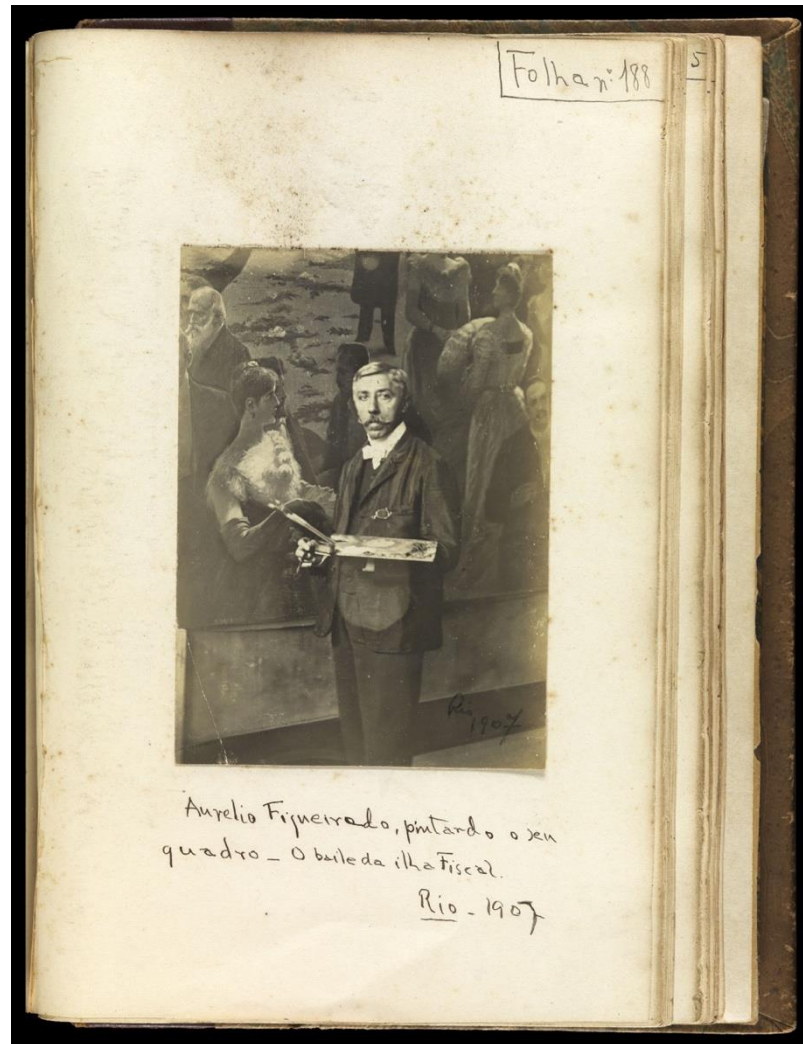 Folha nº 188
5
Rio
1907
Aurelio Figueiredo, pintando o seu
quadro _ O baile da ilha Fiscal.
Rio - 1907